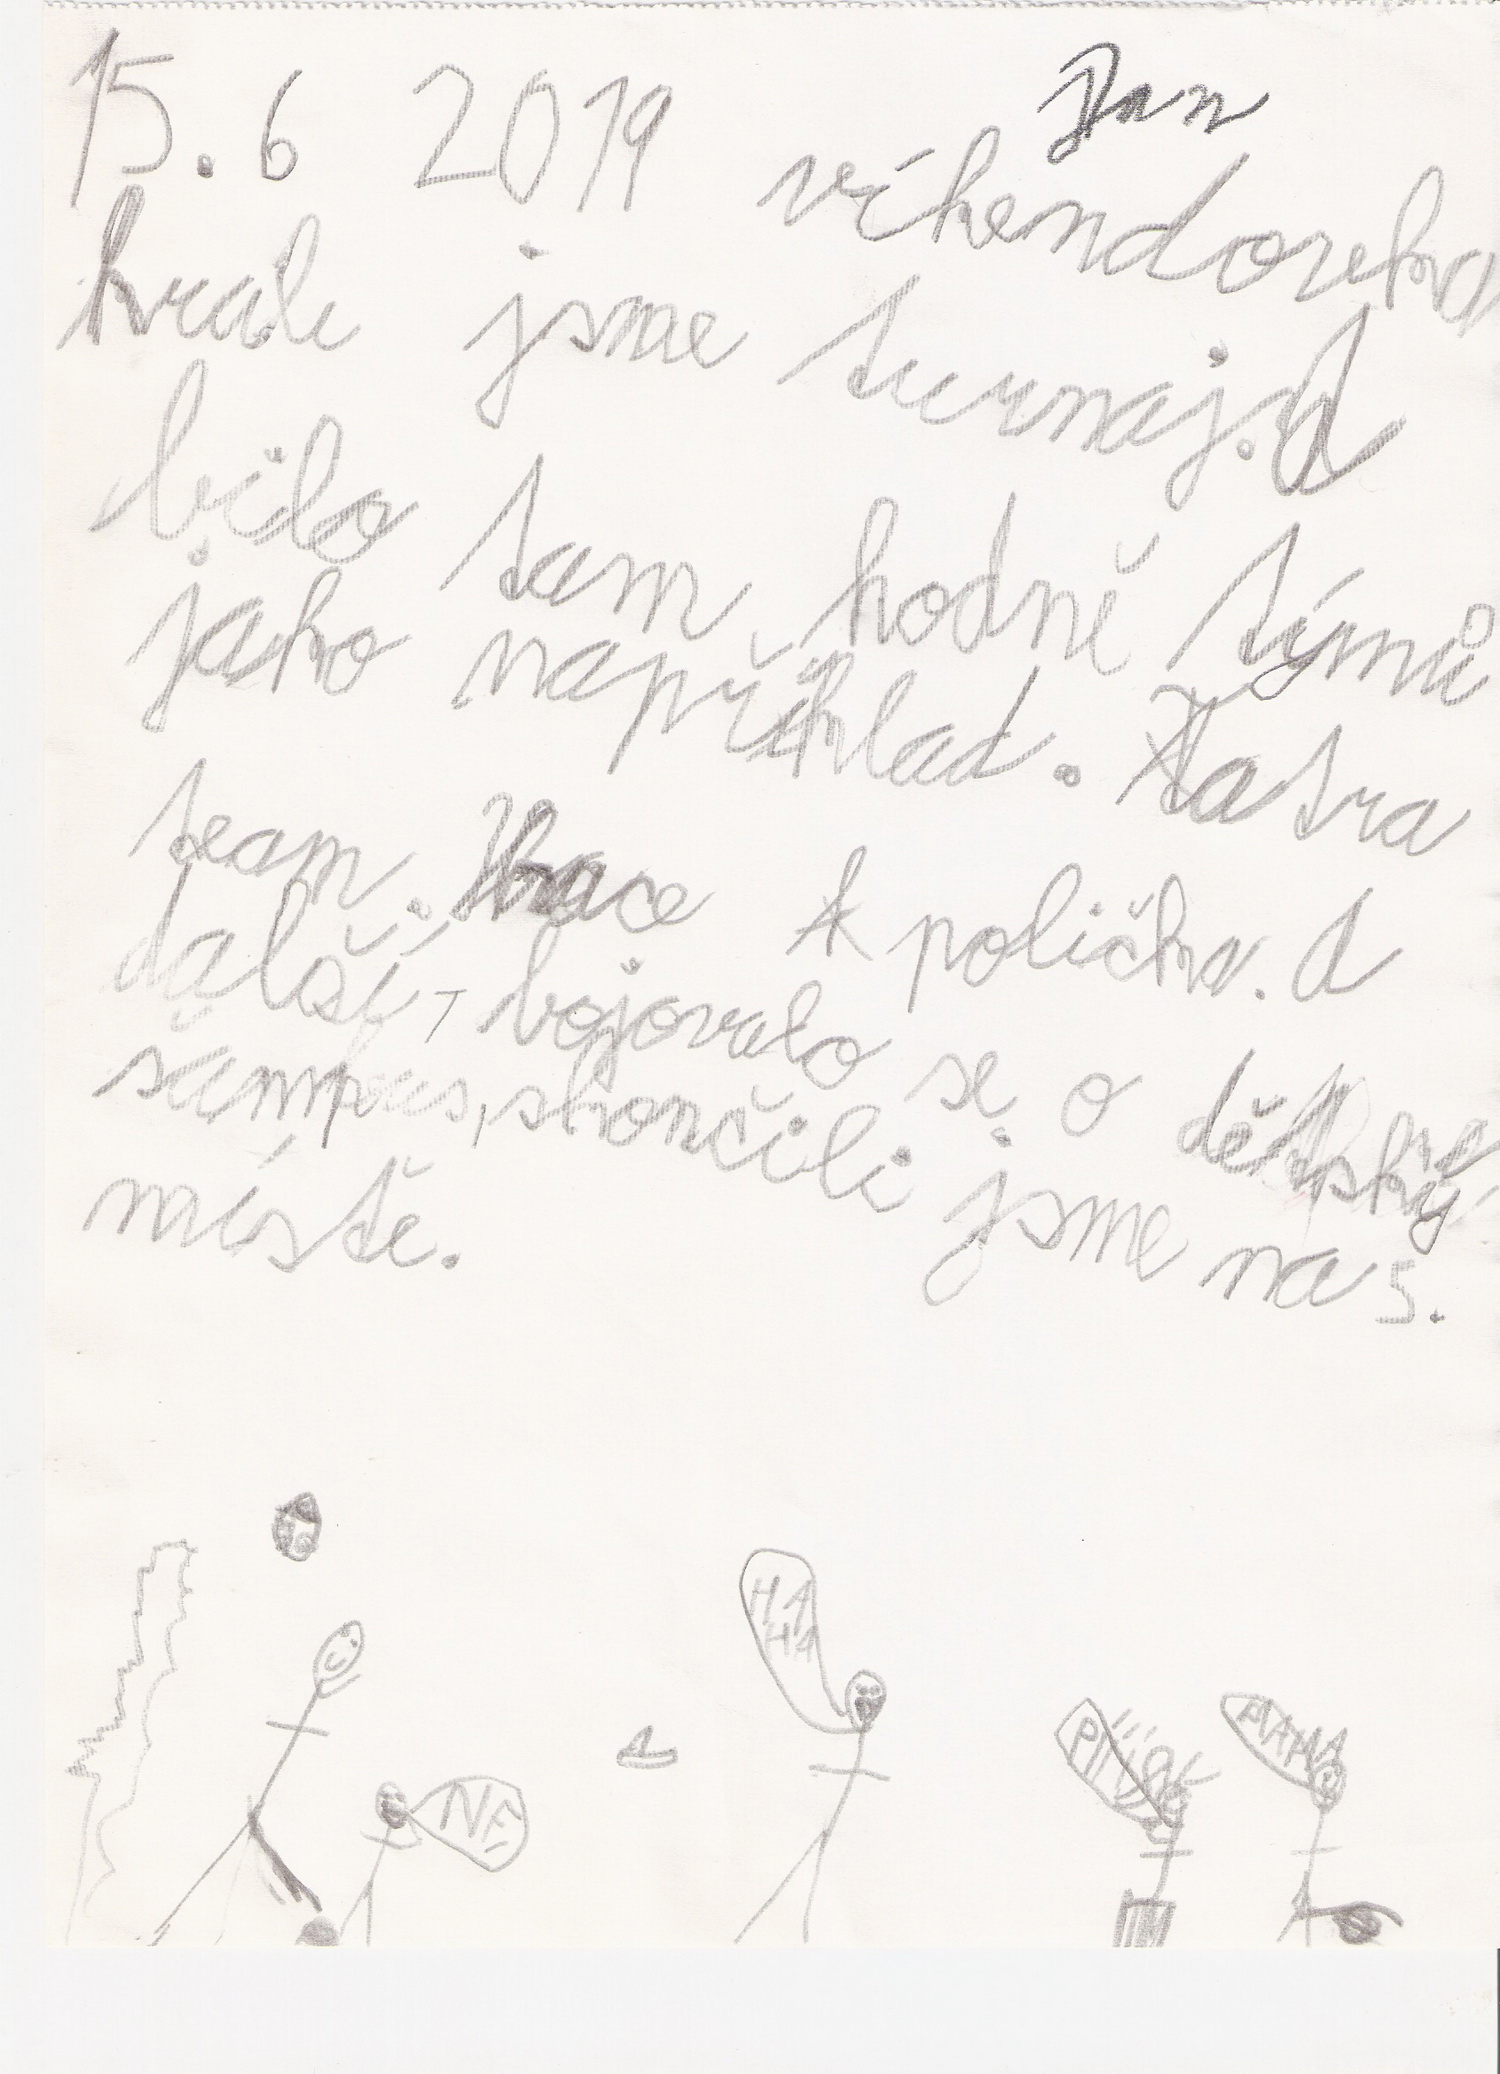 Jan
15.6 2019 víkendovka
hrali jsme turnaj. A
bilo tam hodně týmů
jako například. Tatra
team. Hrace A polička. A
další, bojovalo se o dětský
šampus, skončili jsme na 5.
místě.
HA
HA
NE